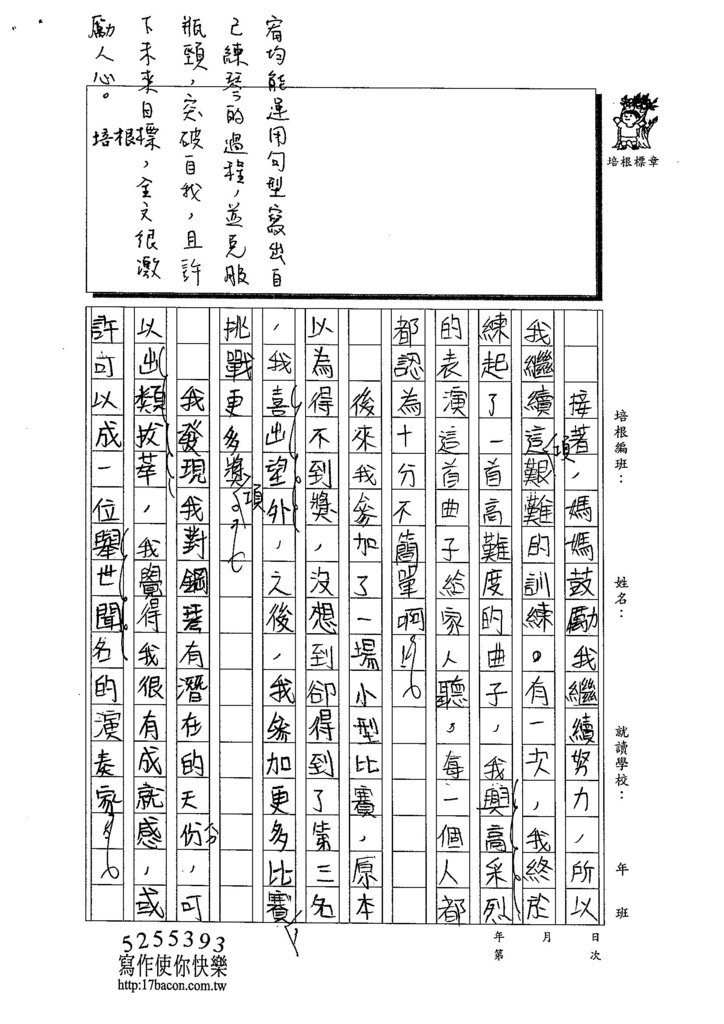 宥均能運用句型寫出自
己練琴的過程，並克服
瓶頸，突破自我，且許
下未來目標，全文很激
勵人心。 培根
培根標章
培根編班：
姓名：
就讀學校：
年 班
年 月 日
第 次
接著，媽媽鼓勵我繼續努力，所以
我繼續這項艱難的訓練。有一次，我終於
練起了一首高難度的曲子，我興高采烈
的表演這首曲子給家人聽，每一個人都
都認為十分不簡單啊！
後來我參加了一場小型比賽，原本
以為得不到獎，沒想到卻得到了第三名
，我喜出望外，之後，我參加更多比賽，
挑戰更多獎項。
我發現我對鋼琴有潛在的天份分，可
以出類拔萃，我覺得我很有成就感，或
許可以成一位舉世聞名的演奏家。
5255393
寫作使你快樂
http:17bacon.com.tw